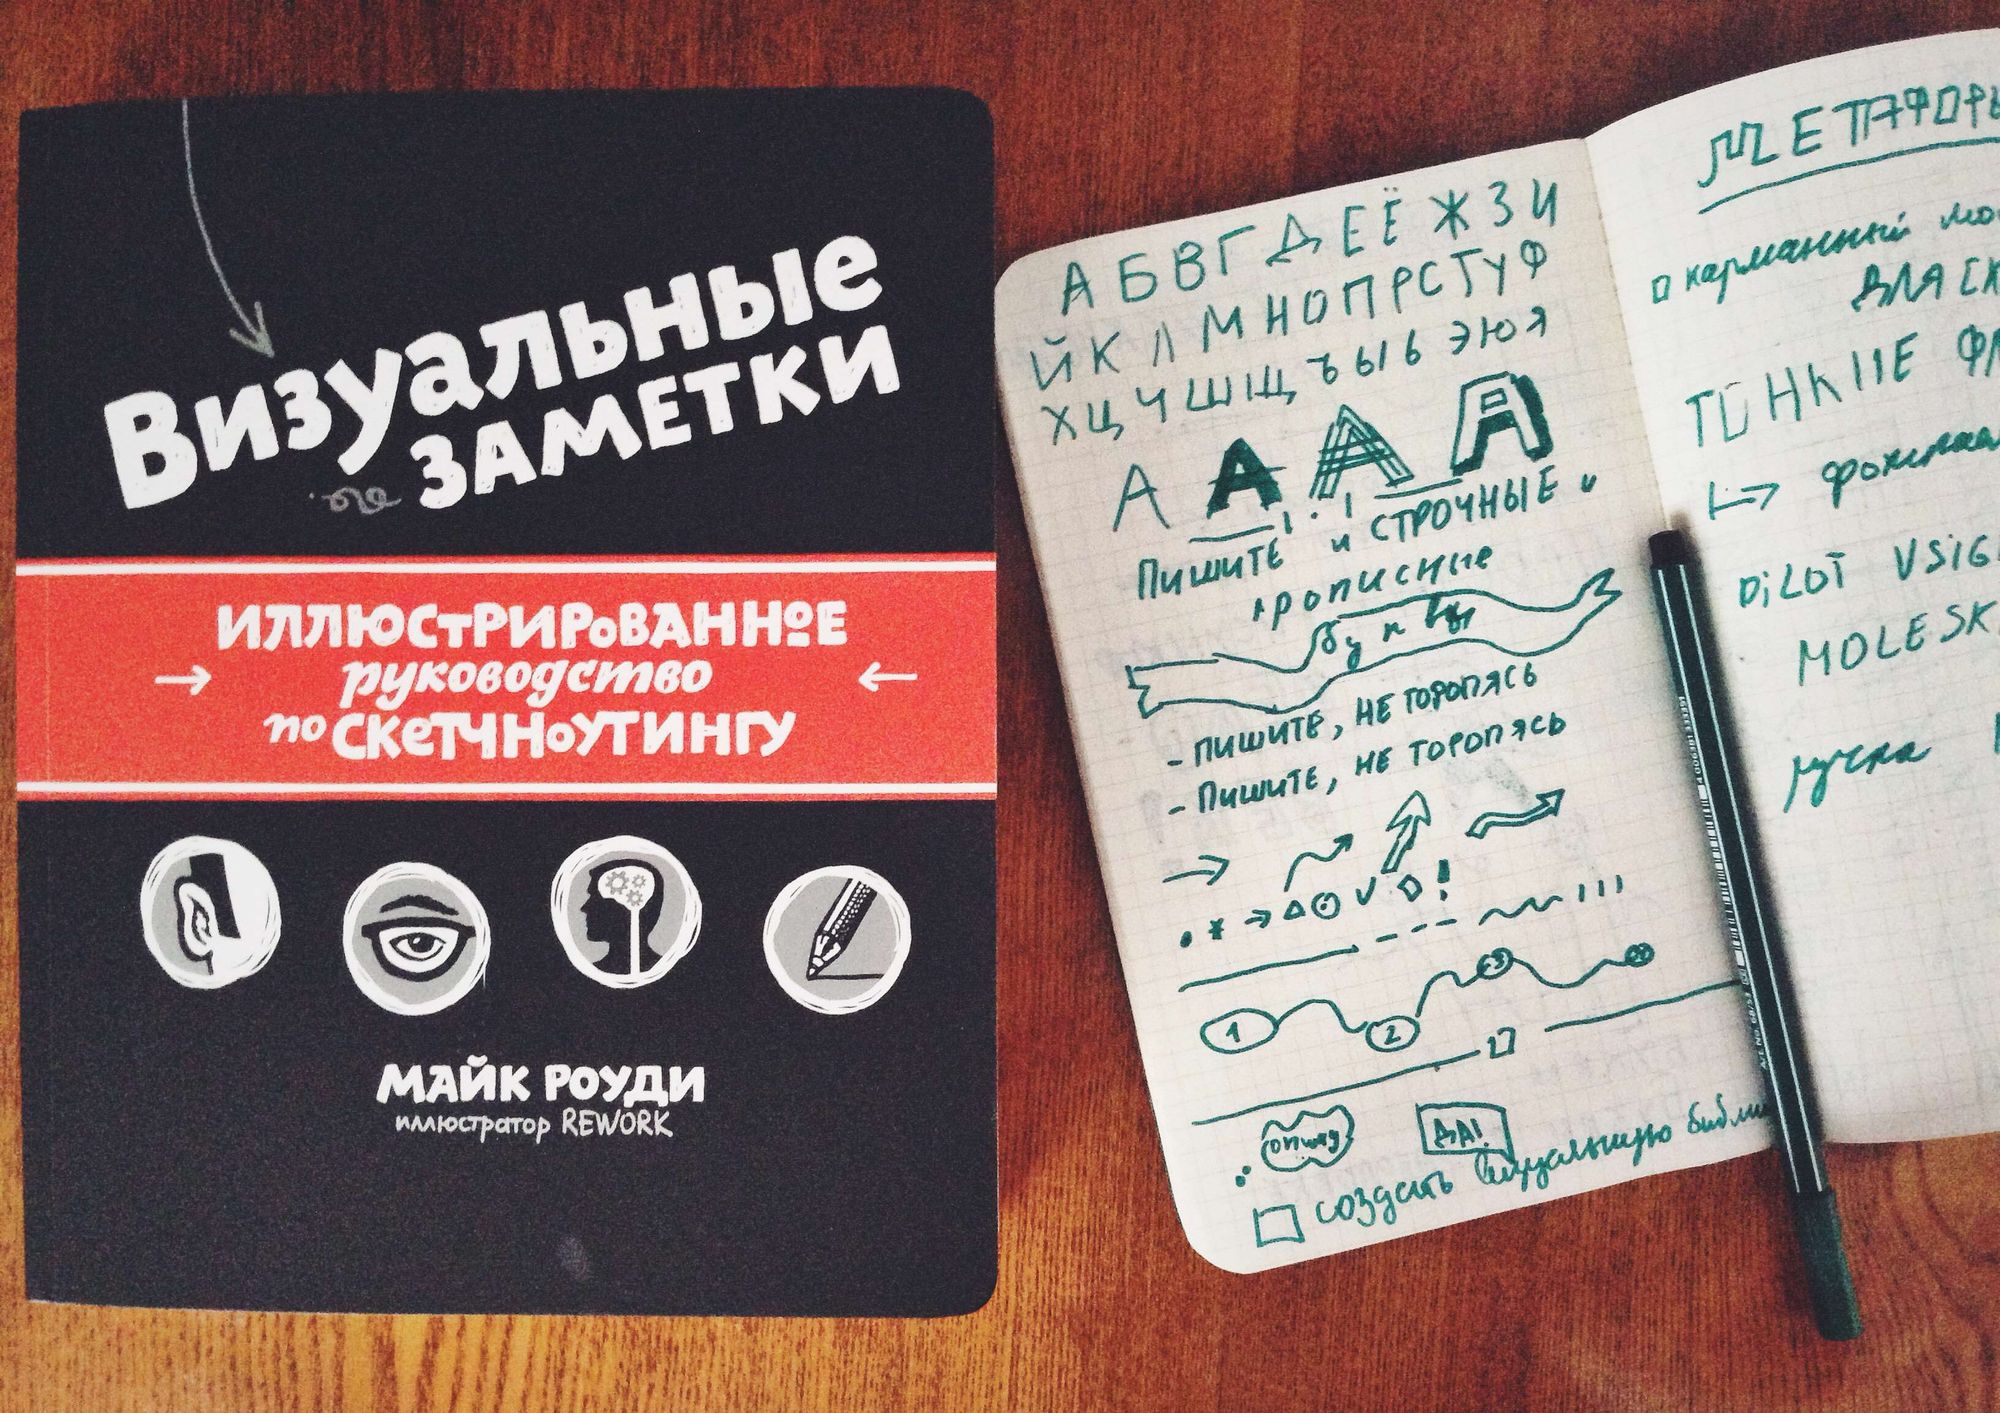 Визуальные
заметки
ИЛЛЮСТРИРОВАННОЕ
руководство
по СКЕТЧНОУТИНГУ
МАЙК РОУДИ
иллюстратор REWORK
А Б В Г Д Е Ё Ж З И
Й К Л М Н О П Р С Т У Ф
Х Ц Ч Ш Щ Ъ Ы Ь Э Ю Я
А А А А
ПИШИТЕ И СТРОЧНЫЕ и
прописные
буквы
- ПИШИТЕ, НЕ ТОРОПЯСЬ
- ПИШИТЕ, НЕ ТОРОПЯСЬ
1 2 3
ДА!
создать визуальную
МЕТАФОРЫ
карманный
ДЛЯ
ТОНКИЕ
PILOT
ручка